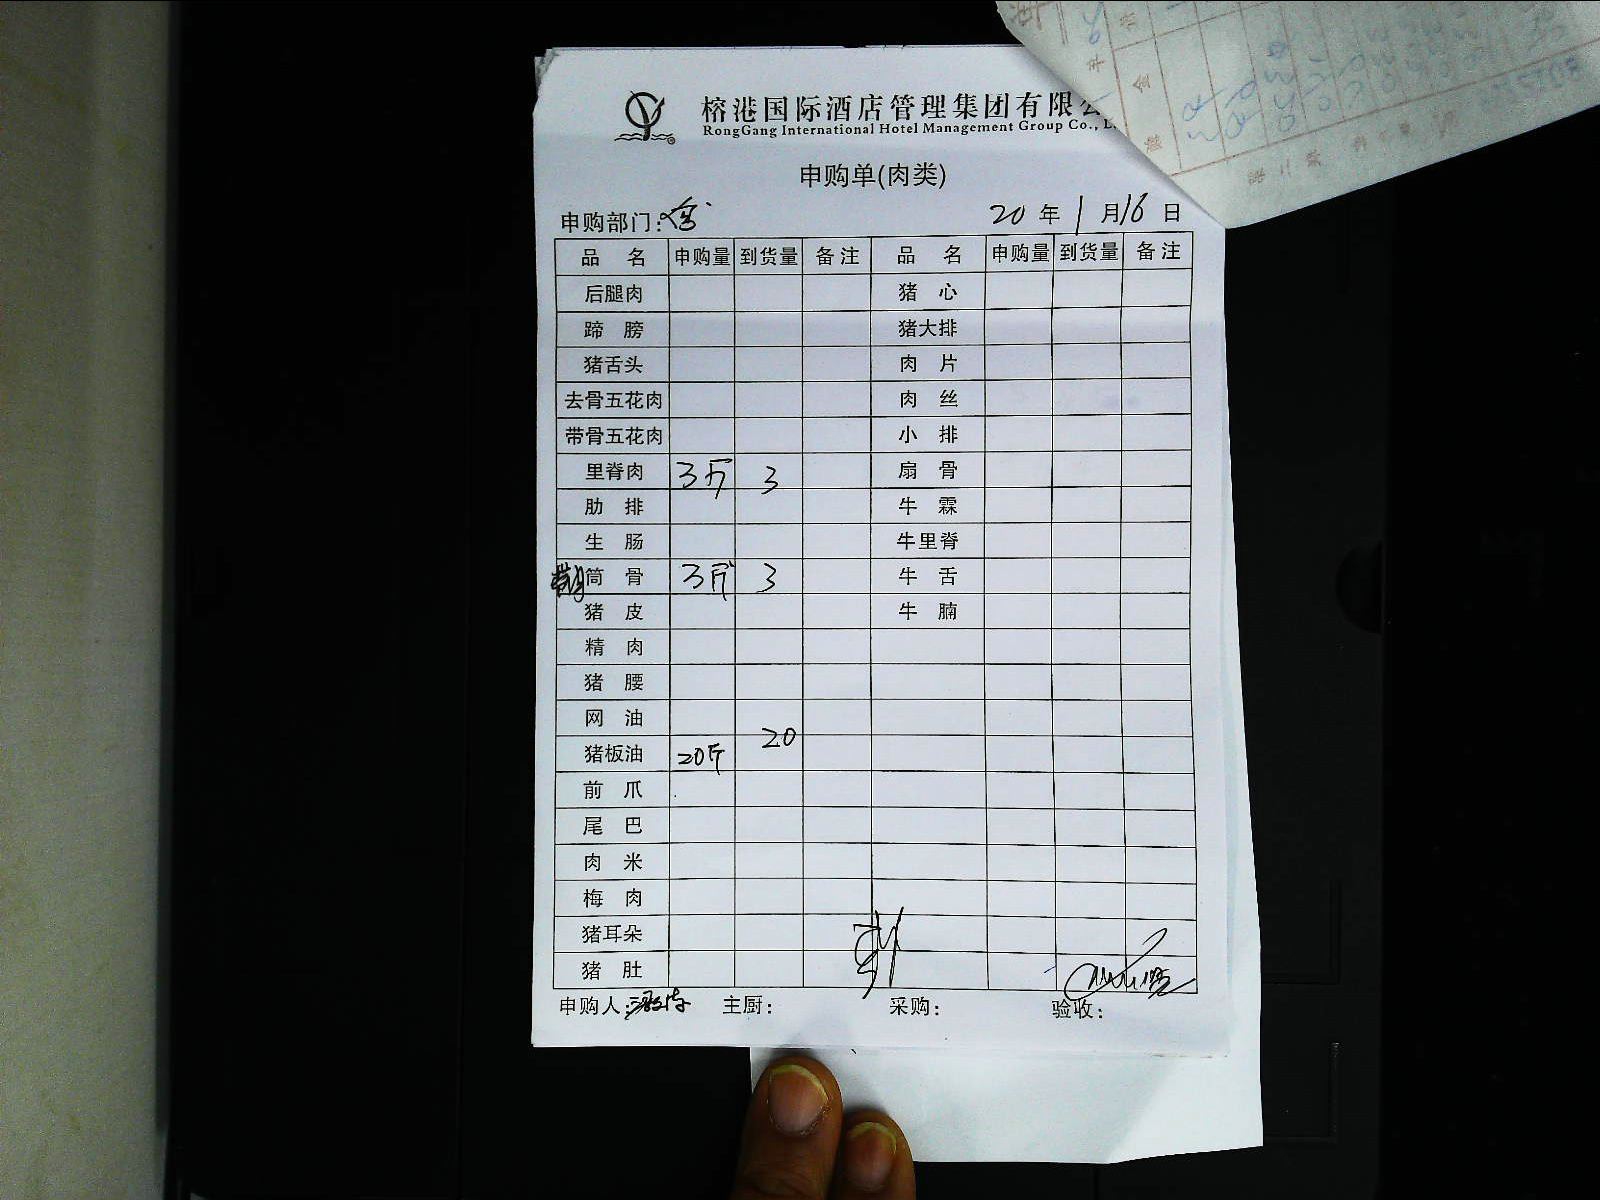 榕港国际酒店管理集团有限公
RongGang International Hotel Management Group Co., L
申购单(肉类)
申购部门: 20 年 1 月 16 日
品 名 申购量 到货量 备注 品 名 申购量 到货量 备注
后腿肉 猪 心
蹄 膀 猪大排
猪舌头 肉 片
去骨五花肉 肉 丝
带骨五花肉 小 排
里脊肉 3斤 3 扇 骨
肋 排 牛 霖
生 肠 牛里脊
筒 骨 3斤 3 牛 舌
猪 皮 牛 腩
精 肉
猪 腰
网 油
猪板油 20斤 20
前 爪
尾 巴
肉 米
梅 肉
猪耳朵
猪 肚
申购人: 主厨: 采购: 验收: